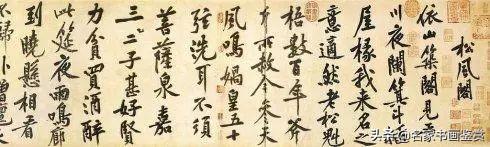 松風閣
依山築閣見平
川夜闌箕斗插
屋椽我來名之
意適然老松魁
梧數百年斧
斤所赦今參天
風鳴媧皇五十
弦洗耳不須
菩薩泉嘉
三二子甚好賢
力貧買酒醉
此筵夜雨鳴廊
到曉懸相看
不歸臥僧氈
头条 @名家书画鉴赏